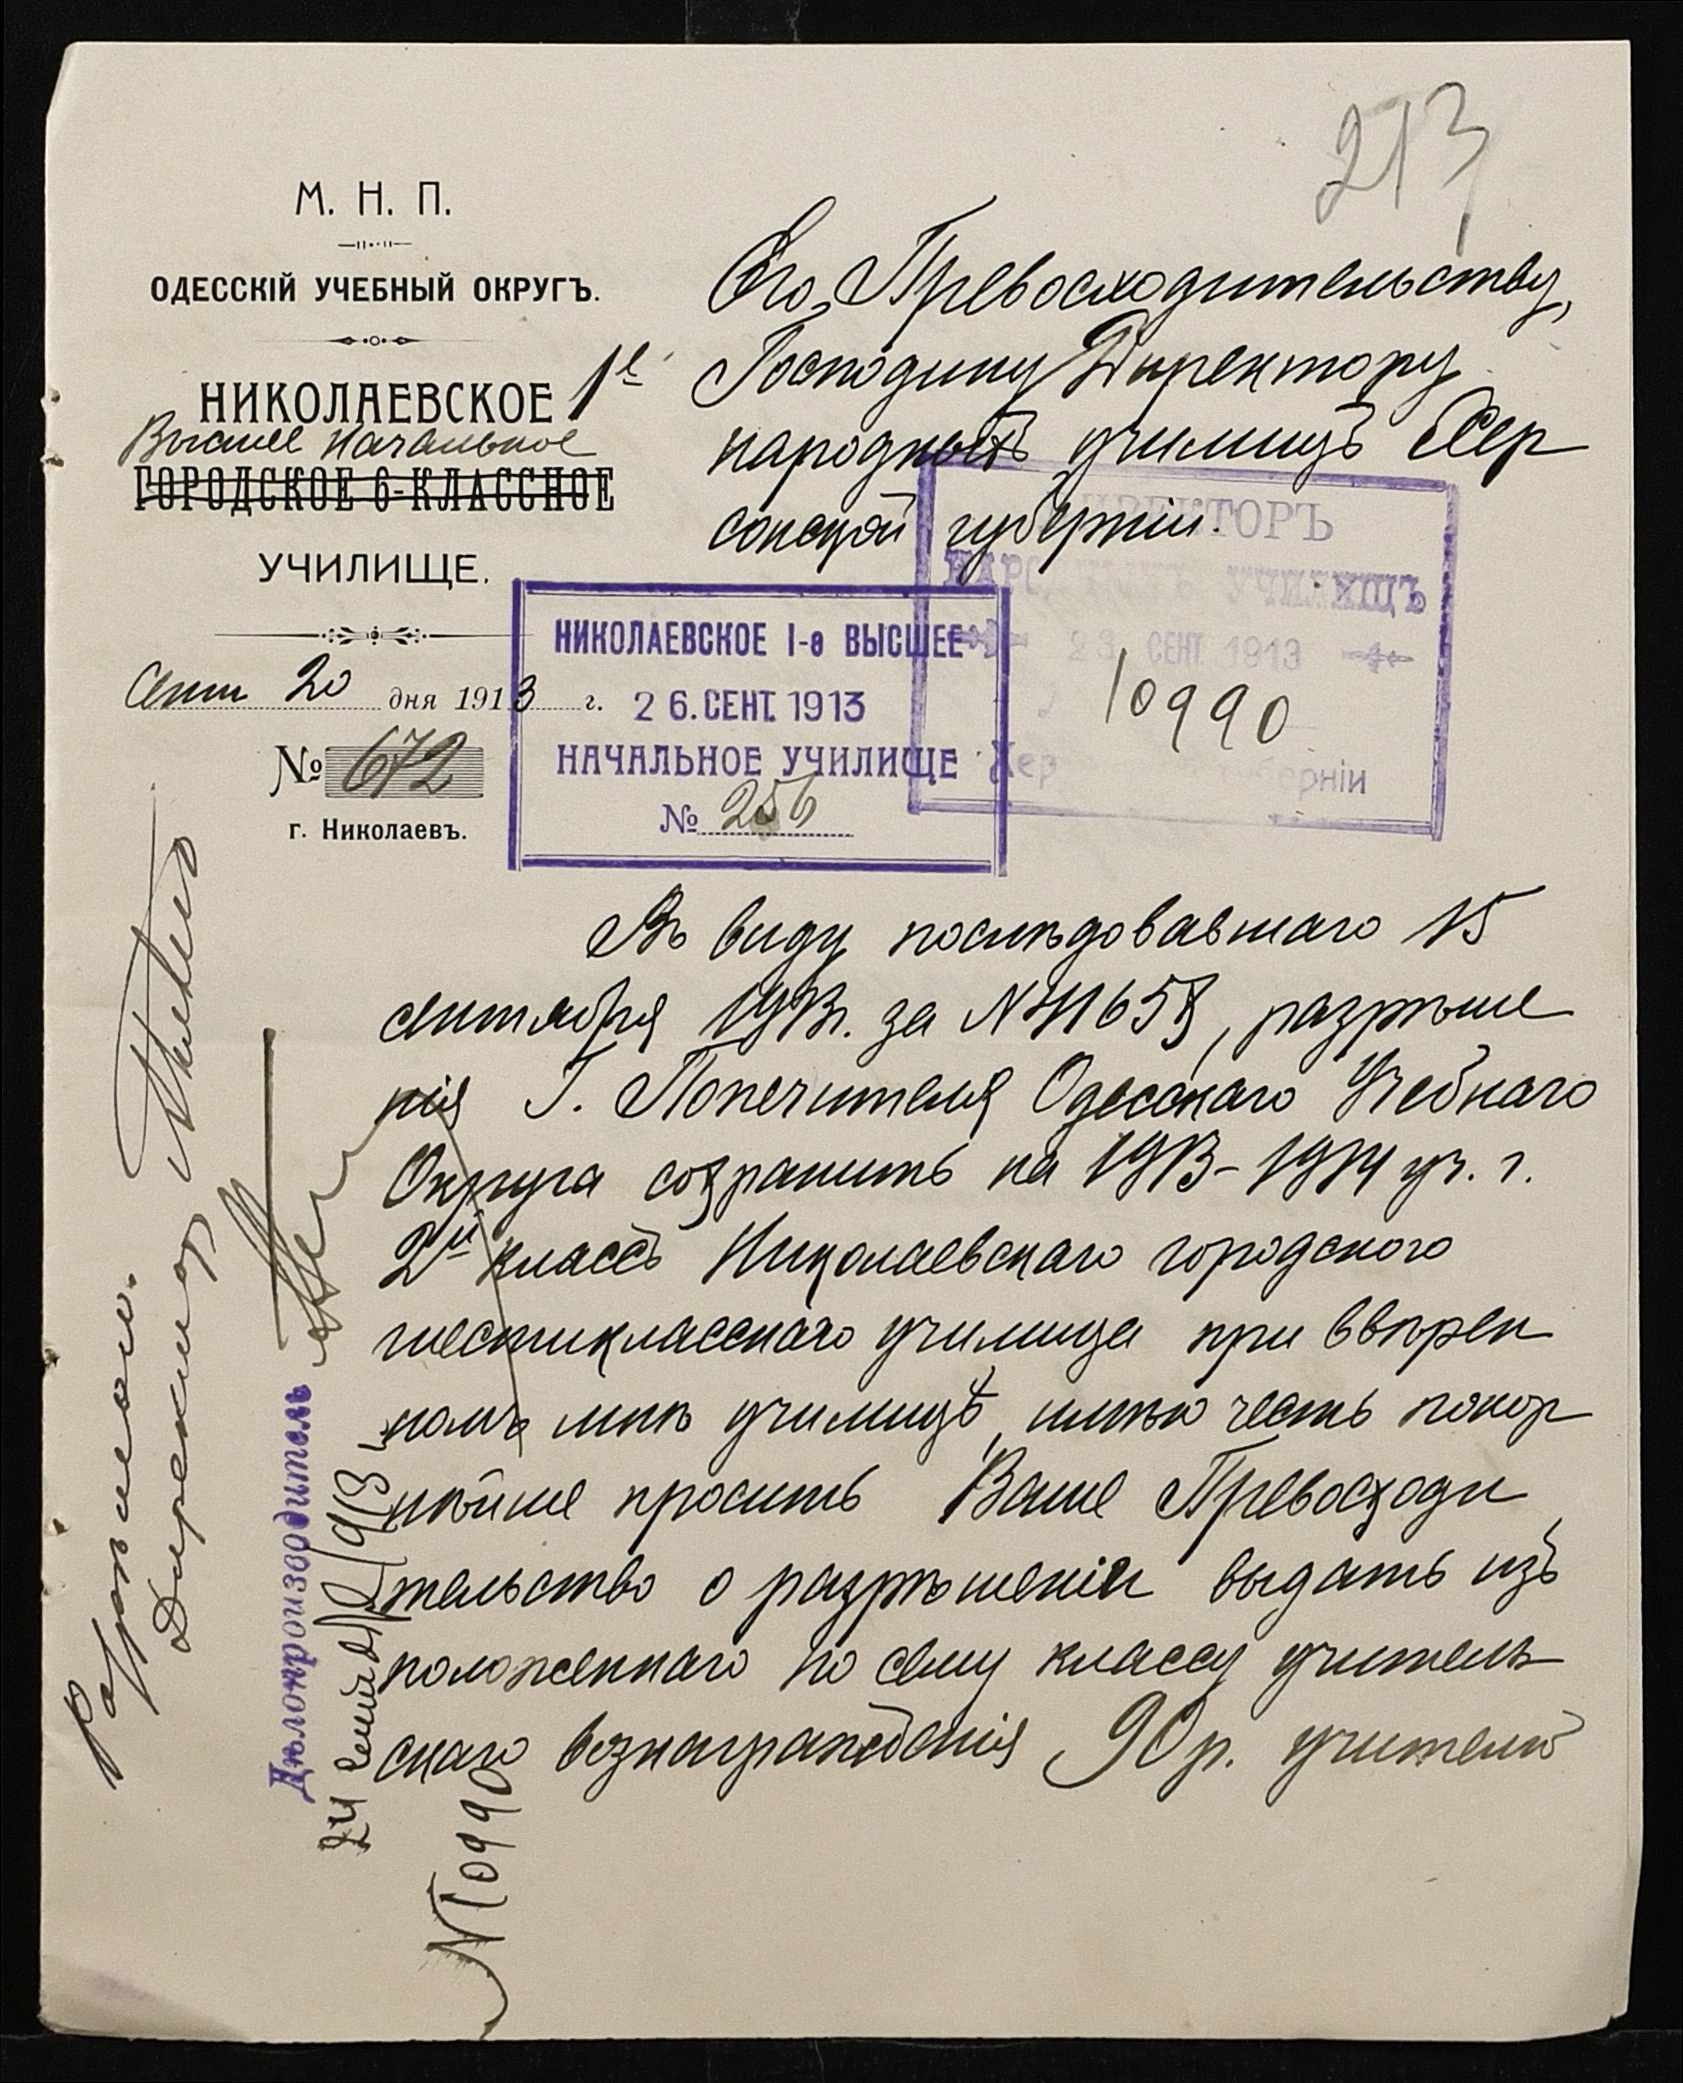 213
М. Н. П.
ОДЕССКІЙ УЧЕБНЫЙ ОКРУГЪ.
НИКОЛАЕВСКОЕ 1е
Высшее Начальное
ГОРОДСКОЕ 6-КЛАССНОЕ
УЧИЛИЩЕ.
Сент 20 дня 1913 г.
№ 672
г. Николаевъ.
Его Превосходительству,
Господину Директору
народныхъ училищъ Хер
сонской губерніи.
ДИРЕКТОРЪ
НАРОДНЫХЪ УЧИЛИЩЪ
23 СЕНТ 1913
10990
Херсонской губерніи
НИКОЛАЕВСКОЕ I-е ВЫСШЕЕ
26. СЕНТ. 1913
НАЧАЛЬНОЕ УЧИЛИЩЕ
№ 256
Въ виду послѣдовавшаго 15
сентября 1913г. за №, разрѣше
нія Г. Попечителя Одесскаго Учебнаго
Округа сохранить на 1913-1914 уч. г.
2й классъ Николаевскаго городского
шестикласснаго училища при ввѣрен
номъ мнѣ училищѣ, имѣю честь покор
нѣйше просить Ваше Превосходи
тельство о разрѣшеніи выдать изъ
положеннаго по сему классу учитель
скаго вознагражденія 90 р. учителю
Разрѣшаю.
Директор
Дѣлопроизводитель
24 сентября 1913
№ 10990